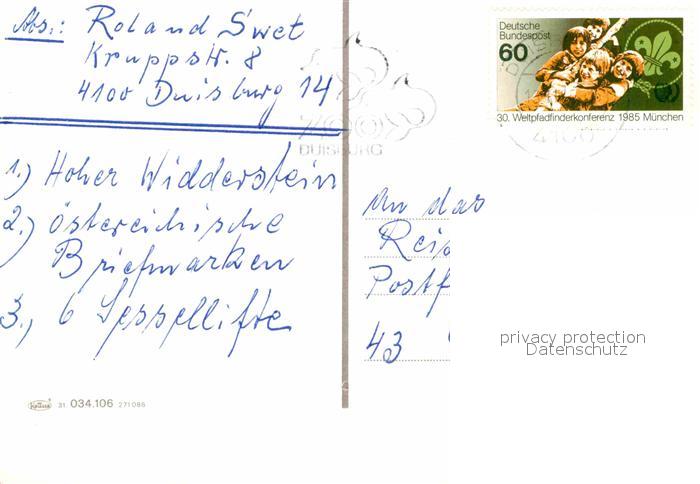 Abs.: Roland Swet
Kruppstr. 8
4100 Duisburg 14
Deutsche
Bundespost
60
30. Weltpfadfinderkonferenz 1985 München
4100
ZOO
DUISBURG
1.) Hoher Widderstein
2.) östereichische
Briefmarken
3.) 6 Sessellifte
An das
Reis
Postf
43
privacy protection
Datenschutz
31. 034.106 271086